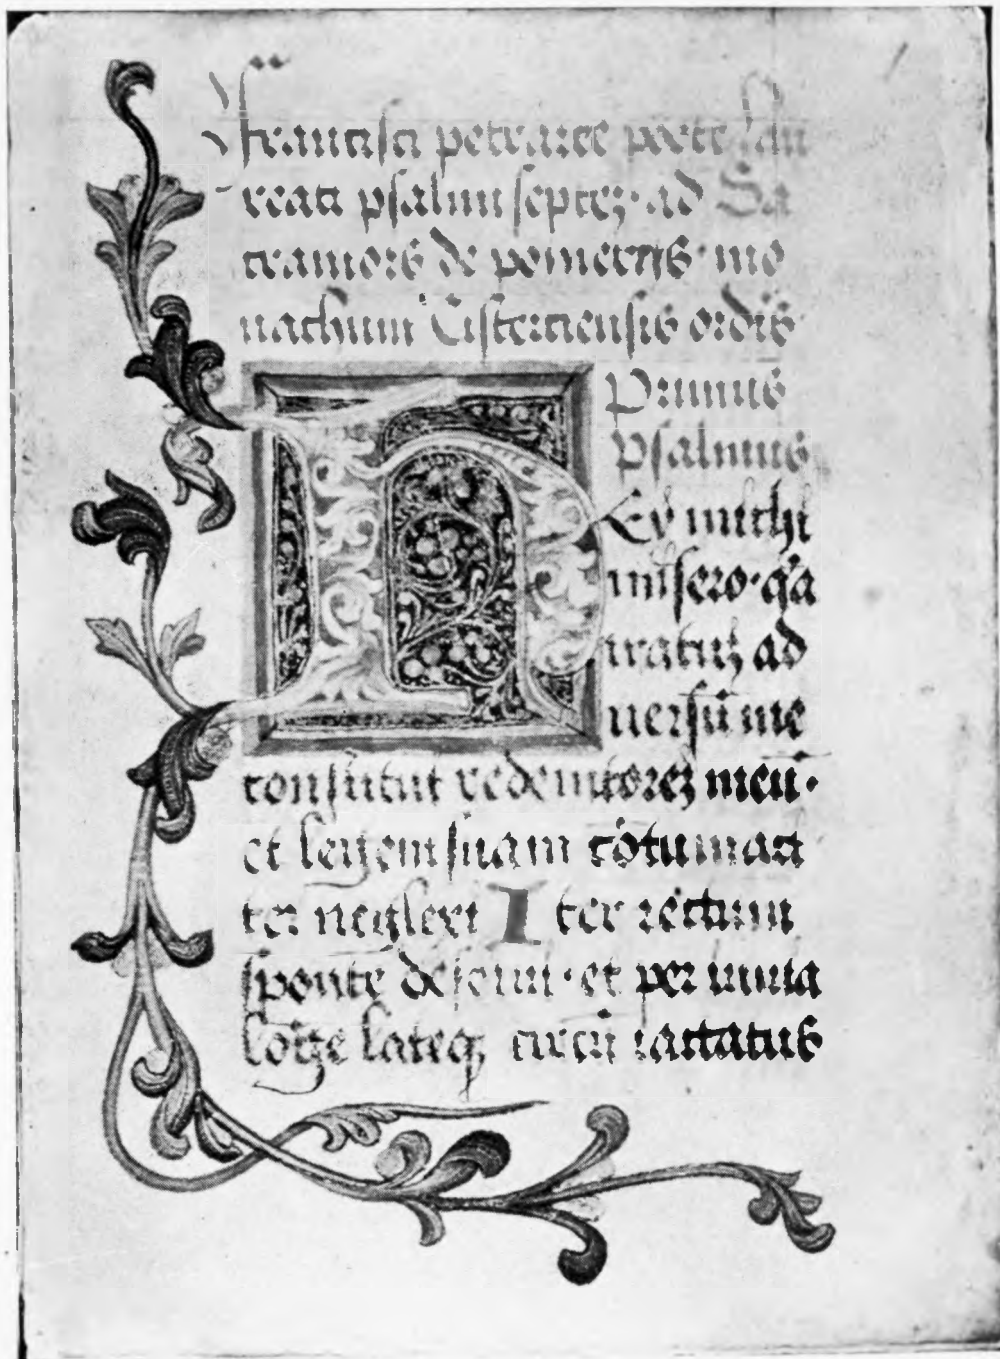 Francisci petrarce poete lau
reati psalmi septez · ad Sa
cramors de pomerijs · mo
nachum Cistertiensis ordis
Primus
Psalmus
HEy michi
misero · qa
iratuz ad
uersū me
constitui redemtorez meū ·
et legem suam cōtumaci
ter neglexi Iter rectum
sponte deserui · et per inuia
lōge lateqz circū iactatus